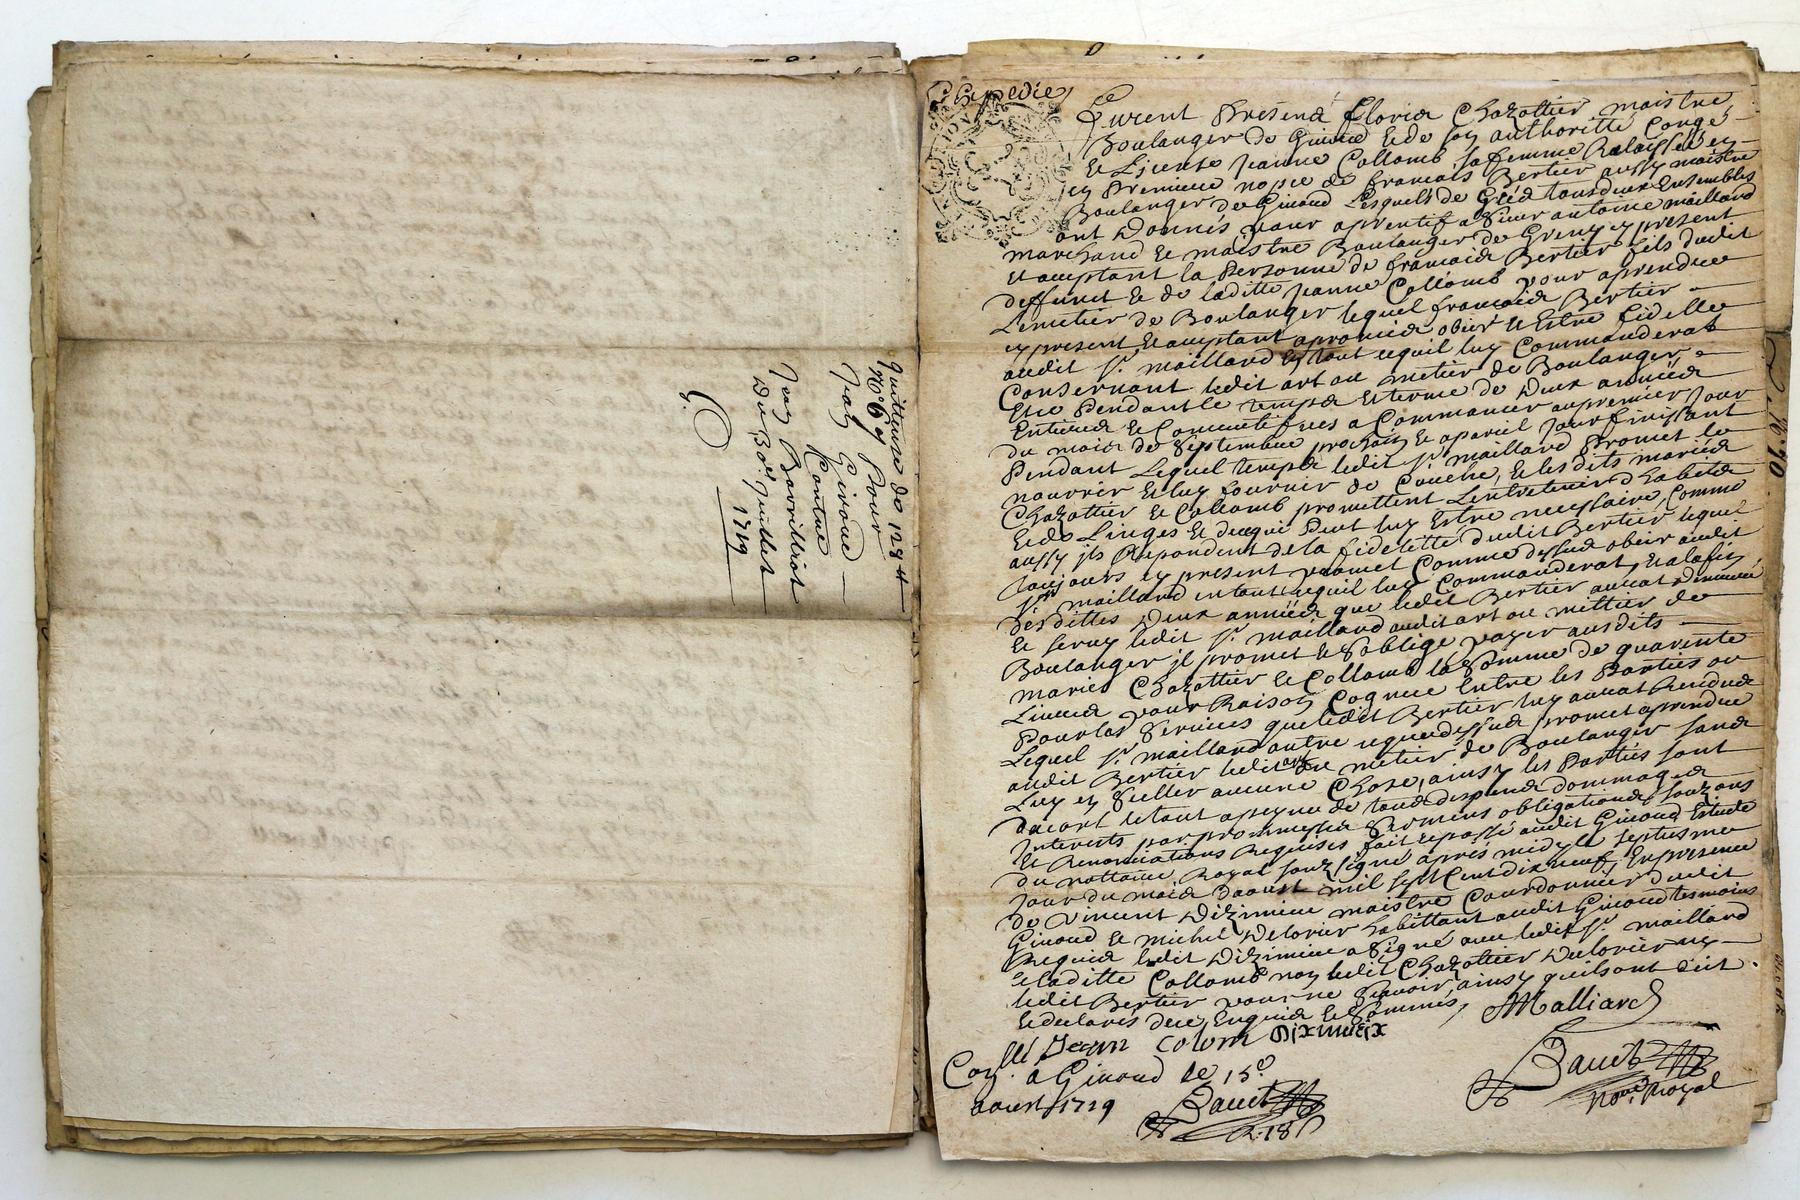 quittense de 128 ll
N° 69 Pour
Jean Giroud
Contre
Jean Barrilliot
Du 30e Juillet
1719
Expedie
Furent Presend florid Chazottier maistre
Boulanger de Giuord & de son authoritté Congé
& License Jeanne Collomb sa femme Relaissée en
en Premiere nopce de francois Bertier aussy maistre
Boulanger de Giuord Lesquels de Gred tous deux Ensembles
ont donnés pour aprentif a Sieur antoine maillard
marchand & maistre Boulanger de Greny present
& aceptant la Personne de francois Bertier fils dudit
deffunct & de laditte Jeanne Collomb pour aprendre
Le metier de Boulanger lequel francois Bertier
cy present & aceptant a promis obeir & Estre fidelle
audit Sr. maillard En tout cequil luy Commanderat
Consernant ledit art ou metier de Boulanger
Et ce Pendant le temps & terme de deux années
Entieres & Consecutifues a Commancer au premier Jour
du mois de Septembre prochain & a pareil Jour finissant
Pendant Lequel temps ledit Sr. maillard Promet le
nourrir & luy fournir de Couche, & lesdits mariés
Chazottier & Collomb promettent Lentretenir d habits
& de Linges & de ce qui Peut luy Estre necessaire, Comme
aussy ils Repondent de la fidelitte dudit Bertier lequel
toujours cy present promet Comme dessus obeir audit
Sr. maillard en tout cequil luy Commanderat, & a la fin
des dittes deux années que ledit Bertier aurat demeuré
& seruy ledit Sr. maillard audit art ou mettier de
Boulanger il promet & soblige payer ausdits
mariés Chazottier & Collomb la Somme de quarente
Liures pour Raison Cognue Entre les Parties ou
Pour les Seruices que ledit Bertier luy aurat Rendus
Lequel Sr. maillard outre ce que dessus promet aprendre
audit Bertier ledit art ou metier de Boulanger sans
Luy en Seller aucune Chose, ainsy les Parties sont
dacort le tout a peyne de tous despens dommages
Interests par prommesses Sermens obligations sousmissions
& Renonciations Requises fait & passé audit Giuord Estude
du nottaire Royal souz signé aprés midy le septiesme
Jour du mois daoust mil sept Cent dix neuf, En presence
de Vincent Dizimieu maistre Courdonnier dudit
Giuord & michel Delorier habittant audit Giuord tesmoins
Requis ledit Dizimieu a Signé auec ledit Sr. maillard
& laditte Collomb non ledit Chazottier Delorier ny
ledit Bertier pour ne Sauoir ainsy quils ont dit
& declarés de ce Enquis & Sommés
AMalliard
Jeann Colom Diximieix
Conllé. a Giuord le 15e
aoust 1719
Bauet
Bauet
Nore. Royal